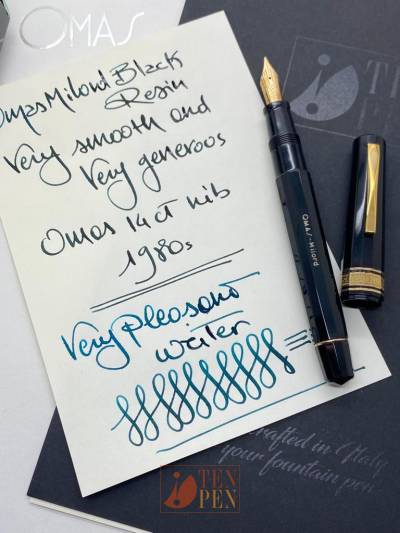 OMAS
Omas Milord Black
Resin
Very smooth and
Very generous
Omas 14 ct nib
1980s
Very Pleasant
writer
OMAS - Milord
TEN
PEN
crafted in Italy
your fountain pen
TEN
PEN